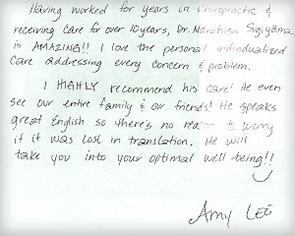 Having worked for years in Chiropractic &
receiving care for over 10 years, Dr. Naruhisa Sugiyama
is AMAZING!! I love the personal individualized
Care addressing every concern & problem.
I HIGHLY recommend his care! He even
see our entire family & our friends! He speaks
great English so there's no reason to worry
if it was lost in translation. He will
take you into your optimal well being!!
Amy LEE